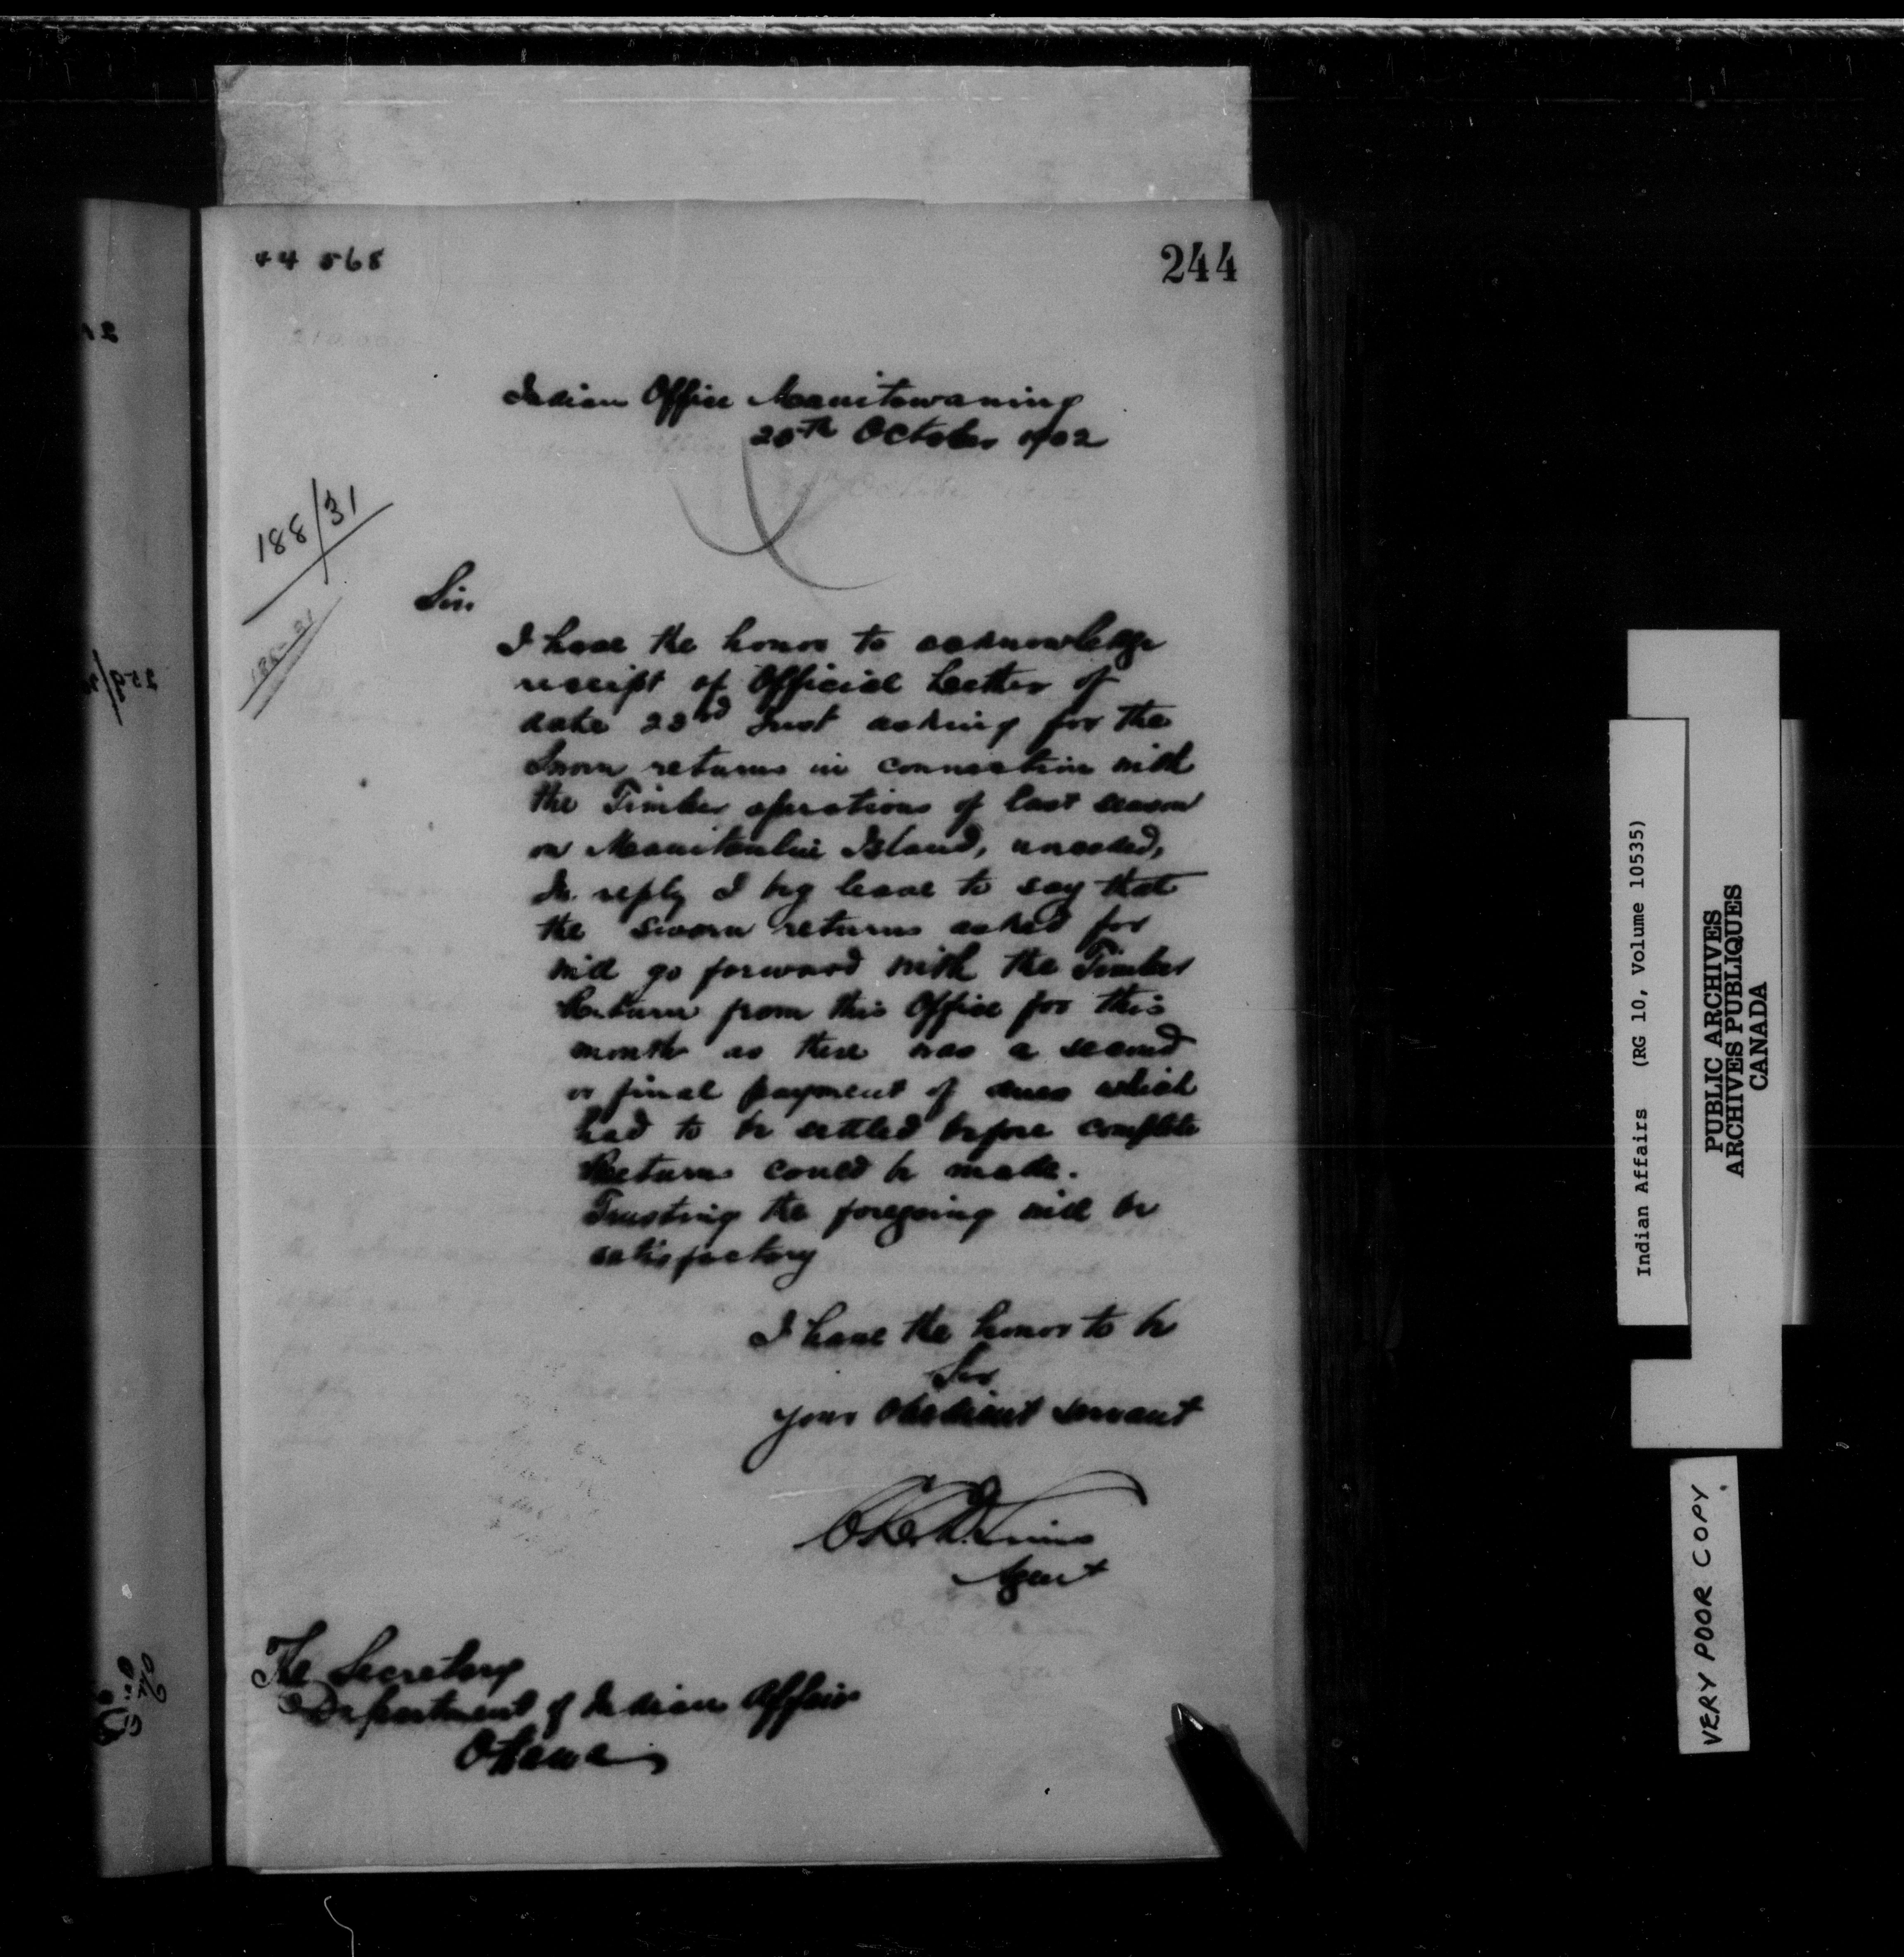 44 568
244
Indian Office Manitowaning
October 1902
188/31
Sir.
I have the honor to acknowledge
receipt of Official Letter of
date 23rd Inst asking for the
Sworn returns in connection with
the Timber operations of last season
on Manitoulin Island, unceded,
In reply I beg leave to say that
the Sworn returns asked for
will go forward with the Timber
Return from this Office for this
month as there was a second
or final payment of dues which
had to be settled before complete
Returns could be made.
Trusting the foregoing will be
satisfactory
I have the honor to be
Sir
your Obedient Servant
Agent
The Secretary
Department of Indian Affairs
Ottawa
Indian Affairs (RG 10, Volume 10535)
PUBLIC ARCHIVES
ARCHIVES PUBLIQUES
CANADA
VERY POOR COPY